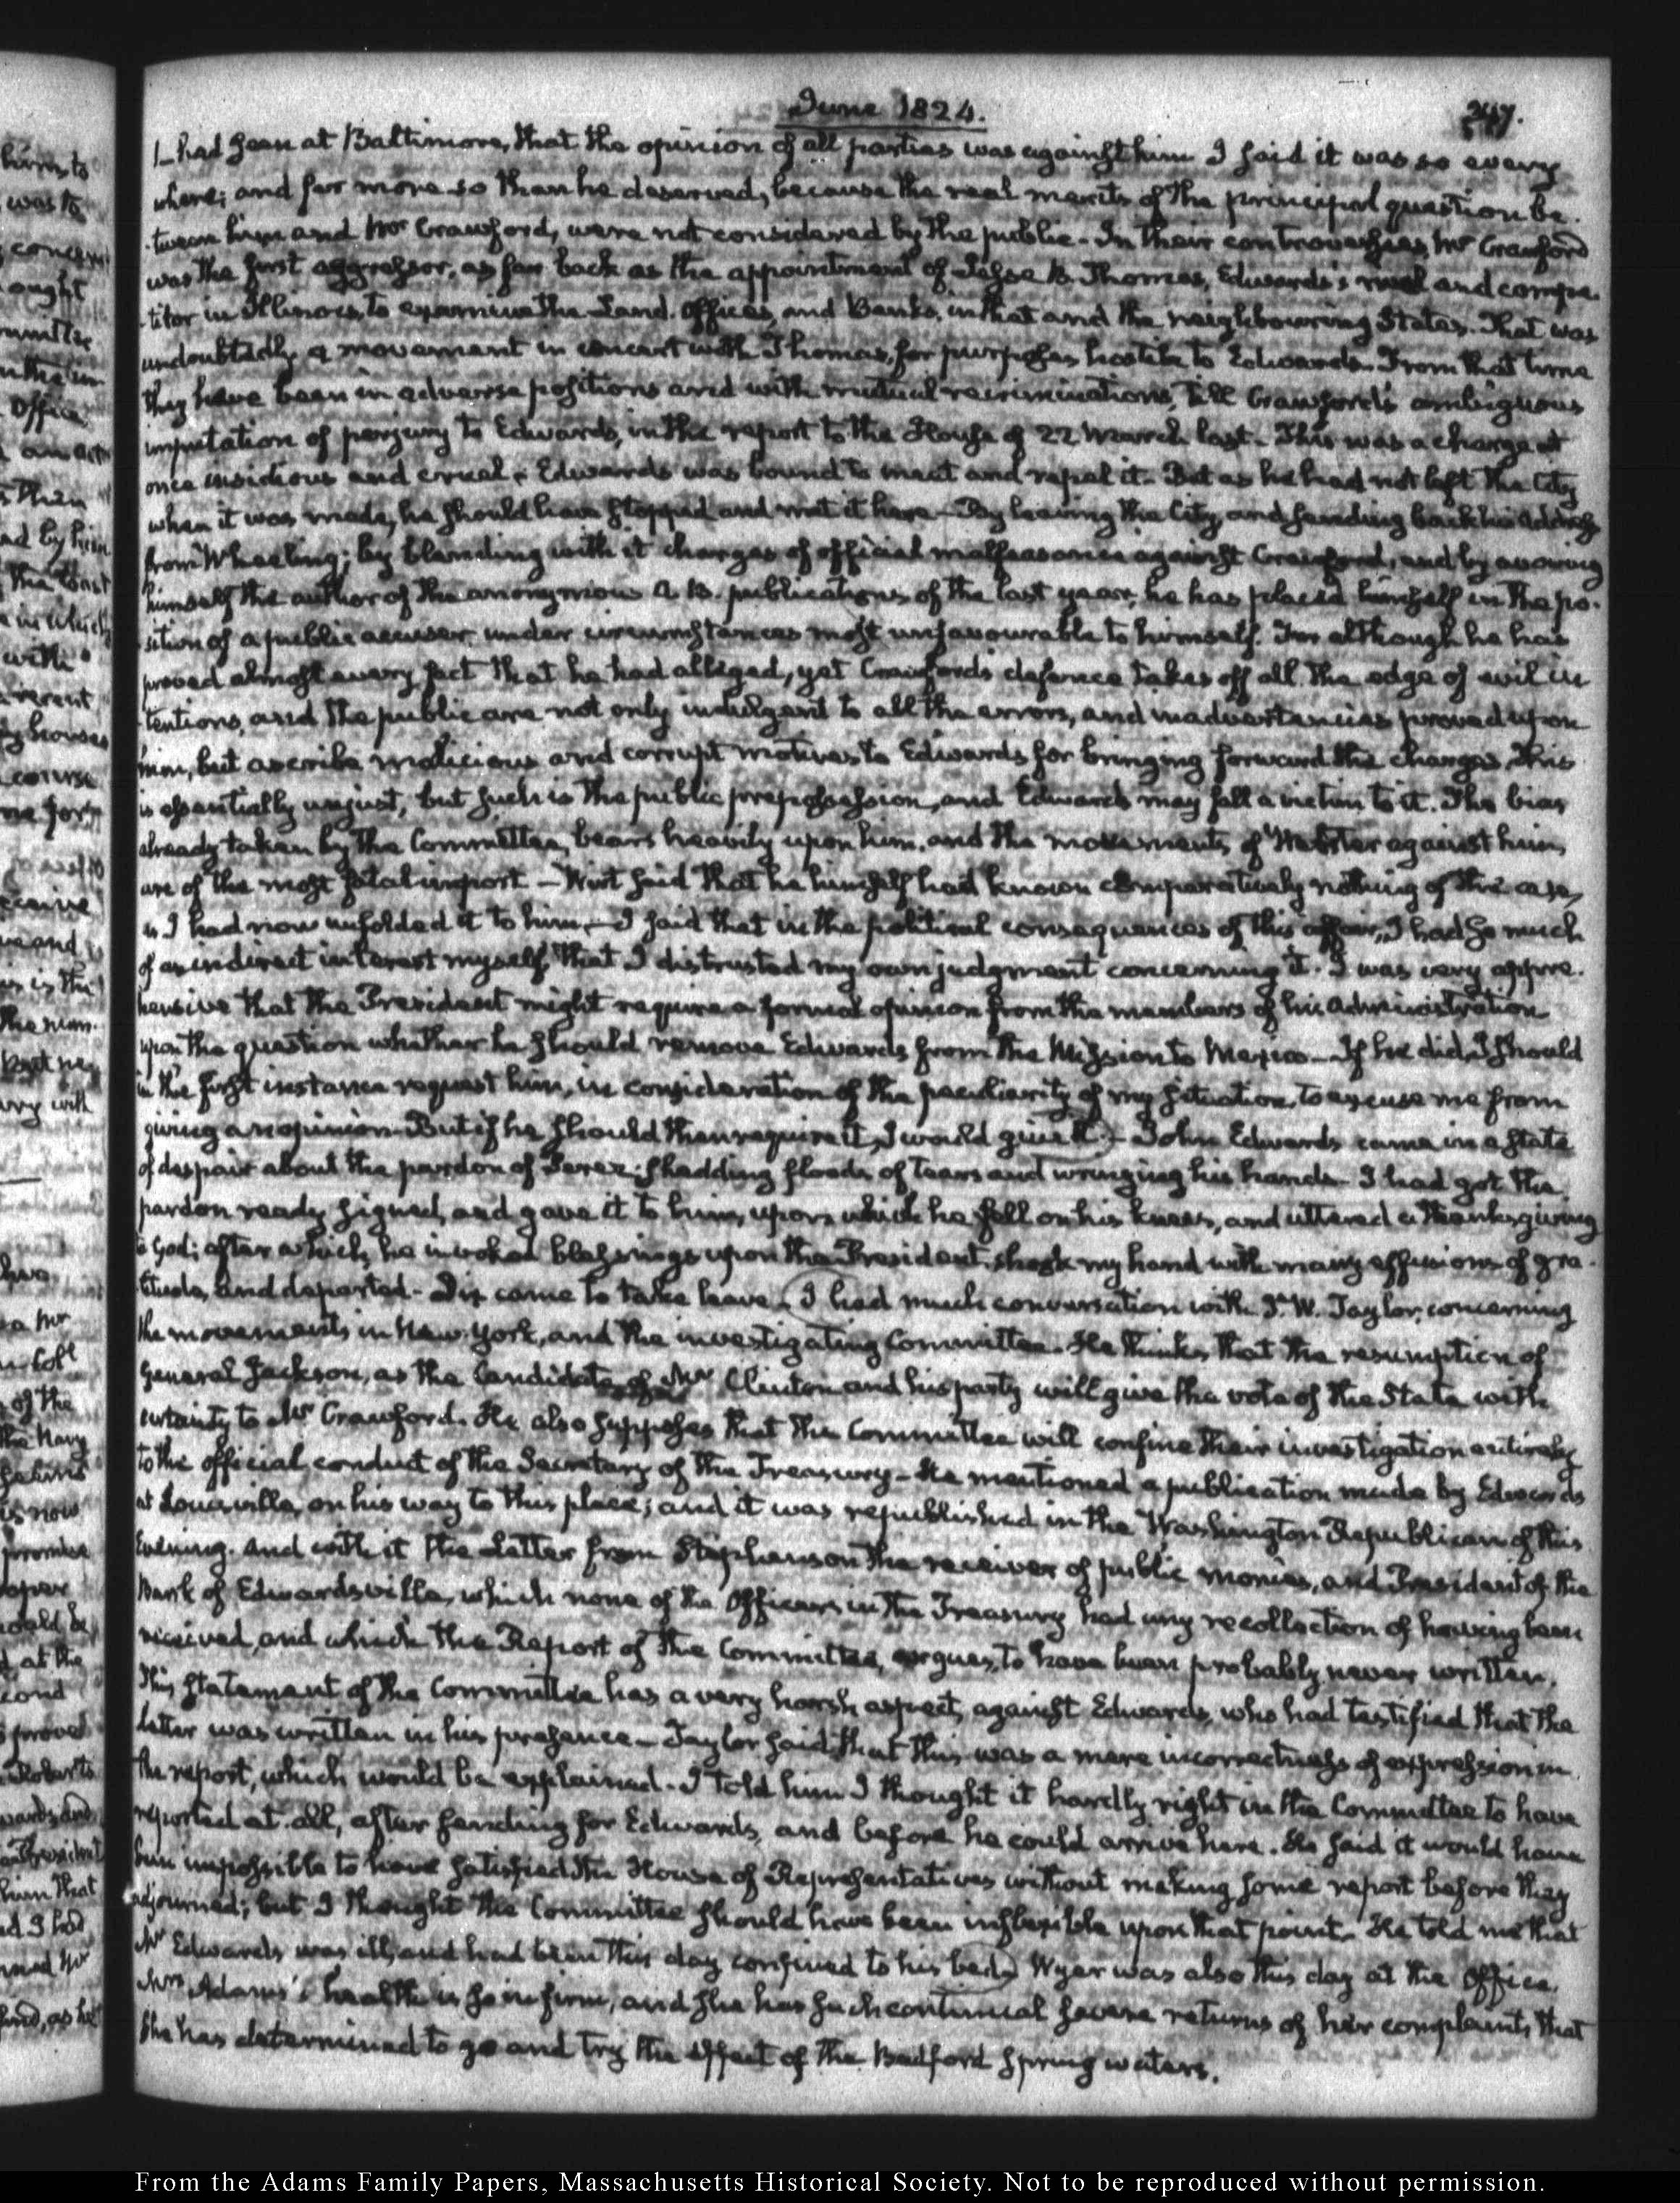 June 1824.
347.
had seen at Baltimore, that the opinion of all parties was against him I said it was so every
where; and far more so than he deserved, because the real merits of the principal question be-
tween him and Mr Crawford, were not considered by the public. In their controversies Mr Crawford
was the first aggressor, as far back as the appointment of Jesse B. Thomas, Edwards's rival and compe-
titor in Illinois, to examine the Land Offices, and Banks, in that and the neighbouring States. That was
undoubtedly a movement in concert with Thomas, for purposes hostile to Edwards. From that time
they have been in adverse positions and with mutual recriminations, till Crawford's ambiguous
imputation of perjury to Edwards, in the report to the House of 22 March last. This was a charge at
once insidious and cruel. Edwards was bound to meet and repel it. But as he had not left the City
when it was made, he should have stopped and met it here — By leaving the City, and sending back his address
from Wheeling; by blending with it charges of official malfeasance against Crawford, and by avowing
himself the author of the anonymous A. B. publications of the last year, he has placed himself in the po-
sition of a public accuser under circumstances most unfavourable to himself. For although he has
proved almost every fact that he had alleged, yet Crawford's defence takes off all the edge of evil in
tentions, and the public are not only indulgent to all the errors, and inadvertencies proved upon
him, but ascribe malicious and corrupt motives to Edwards for bringing forward the charges. This
is essentially unjust, but such is the public prepossession, and Edwards may fall a victim to it. The bias
already taken by the Committee, bears heavily upon him, and the movements of Webster against him,
are of the most fatal import — Wirt said that he himself had known comparatively nothing of the case,
as I had now unfolded it to him — I said that in the political consequences of this affair, I had so much
of an indirect interest myself, that I distrusted my own judgment concerning it. I was very appre-
hensive that the President might require a formal opinion from the members of his Administration
upon the question whether he should remove Edwards from the Mission to Mexico — If he did, I should
in the first instance request him, in consideration of the peculiarity of my situation, to excuse me from
giving an opinion. But if he should then require it, I would give it. — John Edwards came in a state
of despair about the pardon of Perez; shedding floods of tears and wringing his hands. I had got the
pardon ready signed, and gave it to him, upon which he fell on his knees, and uttered a thanksgiving
to God; after which he invoked blessings upon the President, shook my hand with many effusions of gra-
titude, and departed. Dix came to take leave. I had much conversation with J. W. Taylor, concerning
the movements in New-York, and the investigating Committee. He thinks that the resumption of
General Jackson, as the Candidate of Mr Clinton and his party will give the vote of the State with
certainty to Mr Crawford. He also supposes that the Committee will confine their investigation entirely
to the official conduct of the Secretary of the Treasury — He mentioned a publication made by Edwards
at Louisville, on his way to this place; and it was republished in the Washington Republican of this
Evening. And with it the Letter from Stephenson the receiver of public monies, and President of the
Bank of Edwardsville, which none of the Officers in the Treasury had any recollection of having been
received, and which the Report of the Committee, argues, to have been probably never written.
This statement of the Committee has a very harsh aspect, against Edwards, who had testified that the
Letter was written in his presence — Taylor said that this was a mere incorrectness of expression in
the report, which would be explained. I told him I thought it hardly right in the Committee to have
reported at all, after sending for Edwards, and before he could arrive here. He said it would have
been impossible to have satisfied the House of Representatives without making some report before they
adjourned; but I thought the Committee should have been inflexible upon that point. He told me that
Mr Edwards was ill, and had been this day confined to his bed. Wyer was also this day at the Office.
Mrs Adams's health is so infirm, and she has such continual severe returns of her complaint, that
she has determined to go and try the effect of the Bedford Spring waters.
From the Adams Family Papers, Massachusetts Historical Society. Not to be reproduced without permission.